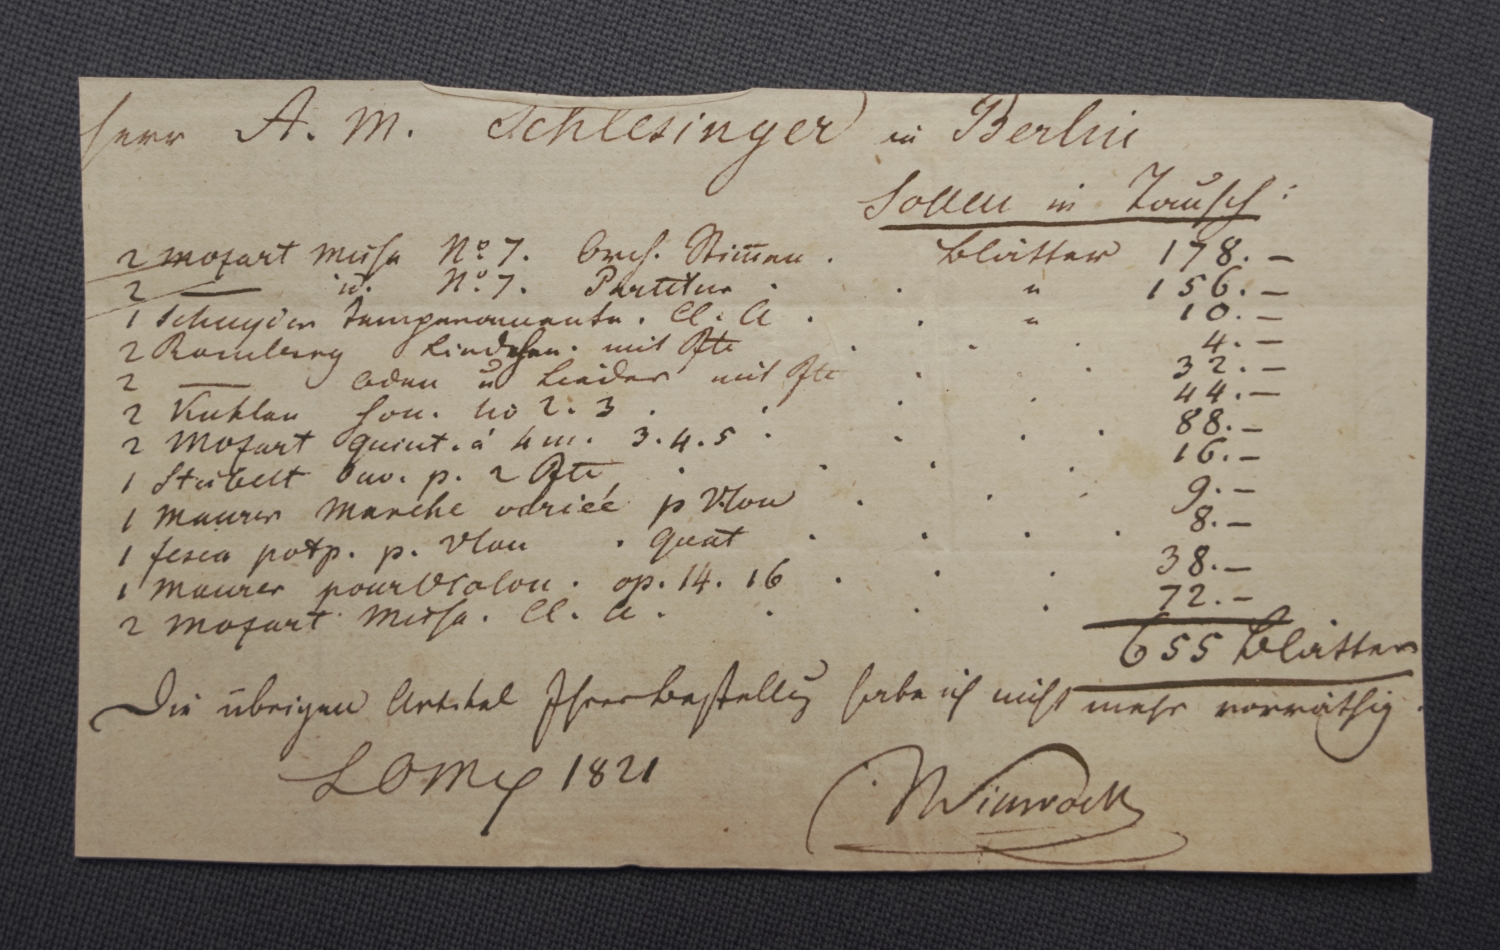 Herr A. M. Schlesinger in Berlin
Sollen in Tausch:
2 Mozart Missa No 7. Orch. Stim̅en . Blätter 178. —
2 — id. No 7. Partitur . . " 156. —
1 Schnyder Temperamente . Cl. A . . " 10. —
2 Romberg Liedchen . mit Pfte . . . 4. —
2 — Oden u Lieder mit Pfte . . . 32. —
2 Kuhlau Son. No 2. 3 . . . . 44. —
2 Mozart Quint. à 4 m. 3. 4. 5 . . . . 88. —
1 Steibelt Ouv. p. 2 Pfte . . . . 16. —
1 Maurer Marche variée p Vlon . . . 9. —
1 Fesca potp. p. Vlon . Quat . . . . 8. —
1 Maurer pour Violon . op. 14. 16 . . . 38. —
2 Mozart Missa . Cl. A . . . . 72. —
655 Blätter
Die übrigen Artikel Ihrer Bestellg habe ich nicht mehr vorräthig .
1821
NSimrock